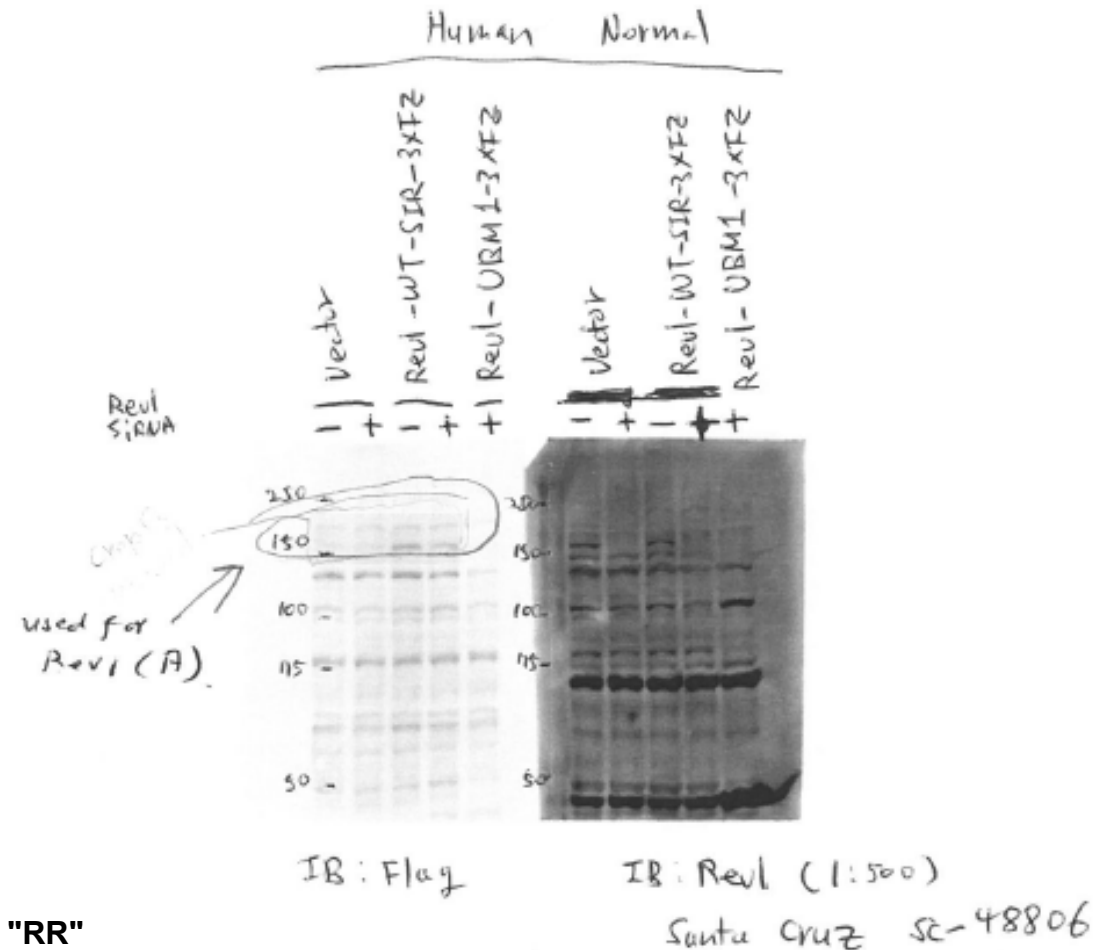 Human Normal
Vector
Rev1-WT-SIR-3xFZ
Rev1-UBM1-3xFZ
Vector
Rev1-WT-SIR-3xFZ
Rev1-UBM1-3xFZ
Rev1
SiRNA
- + - + + - + - + +
250
150
100
75
50
250
150
100
75
50
used for
Rev1 (A).
IB: Flag
IB: Rev1 (1:500)
Santa Cruz sc-48806
"RR"